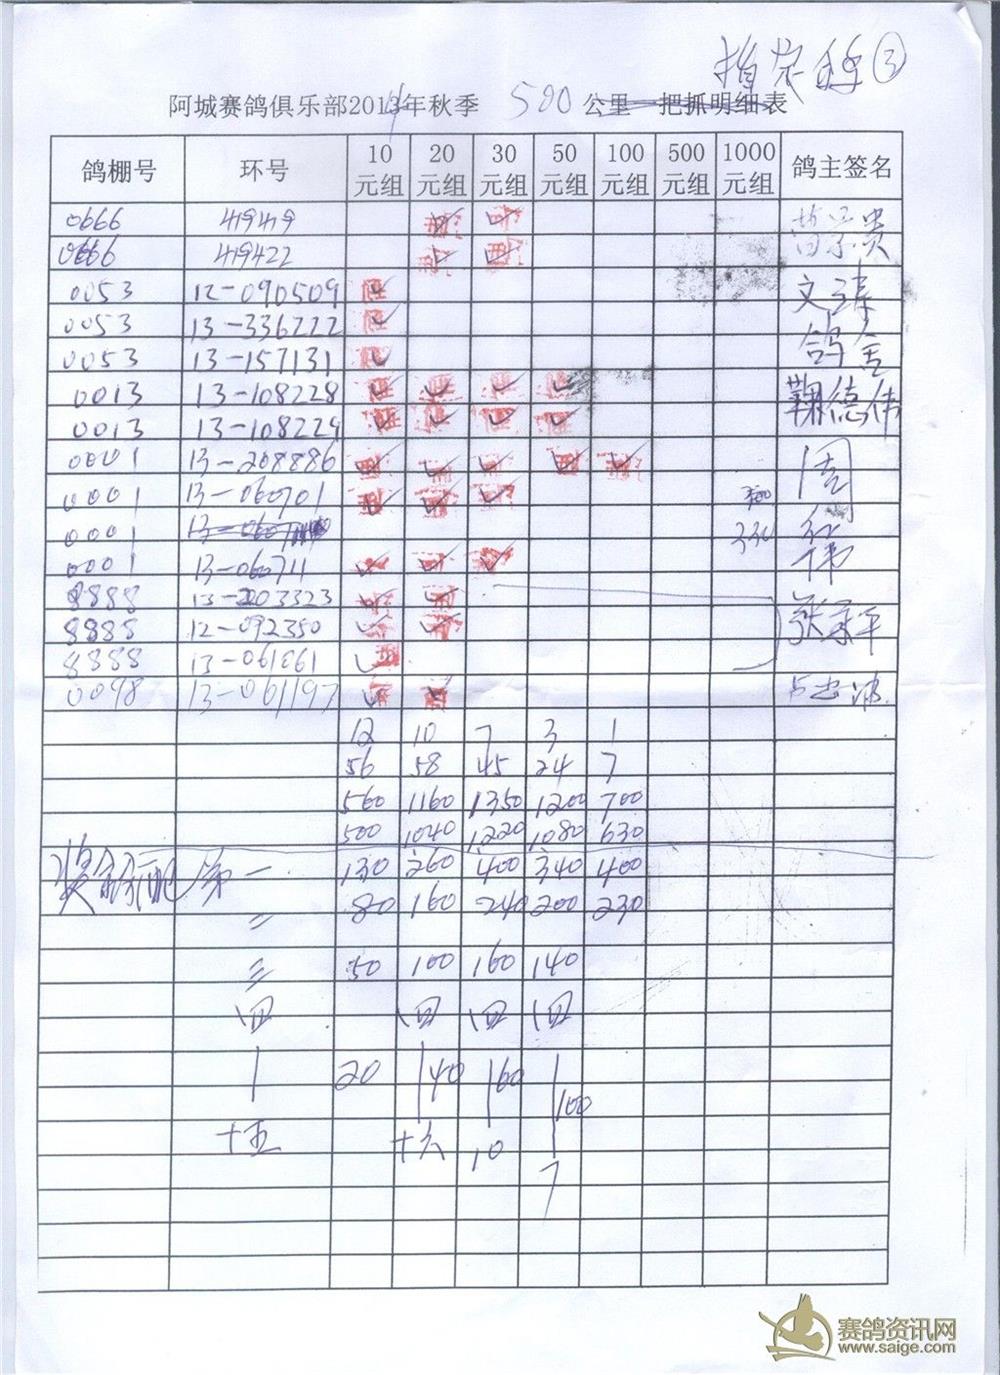 指定鸽③
阿城赛鸽俱乐部2014年秋季 500 公里一把抓明细表
鸽棚号 环号 10元组 20元组 30元组 50元组 100元组 500元组 1000元组 鸽主签名
0666 419419 ✓ ✓
0666 419422 ✓ ✓
0053 12-090509 ✓ 文
0053 13-336222 ✓
0053 13-157131 ✓ 鸽舍
0013 13-108228 ✓ ✓ ✓ ✓ 鞠德伟
0013 13-108229 ✓ ✓ ✓ ✓
0001 13-208886 ✓ ✓ ✓ ✓ ✓ 周
0001 13-060701 ✓ ✓ ✓
0001 330 伟
0001 13-060711 ✓ ✓ ✓
8888 13-203323 ✓ ✓
8888 12-092350 ✓ ✓ 张
8888 13-061861 ✓
0098 13-061197 ✓ ✓
12 10 7 3 1
56 58 45 24 7
560 1160 1350 1200 700
500 1040 1220 1080 630
奖金分配 第一 130 260 400 340 400
二 80 160 240 200 230
三 50 100 160 140
四 四 四 四
20 40 60 100
十五 十六 10 7
赛鸽资讯网
www.saige.com